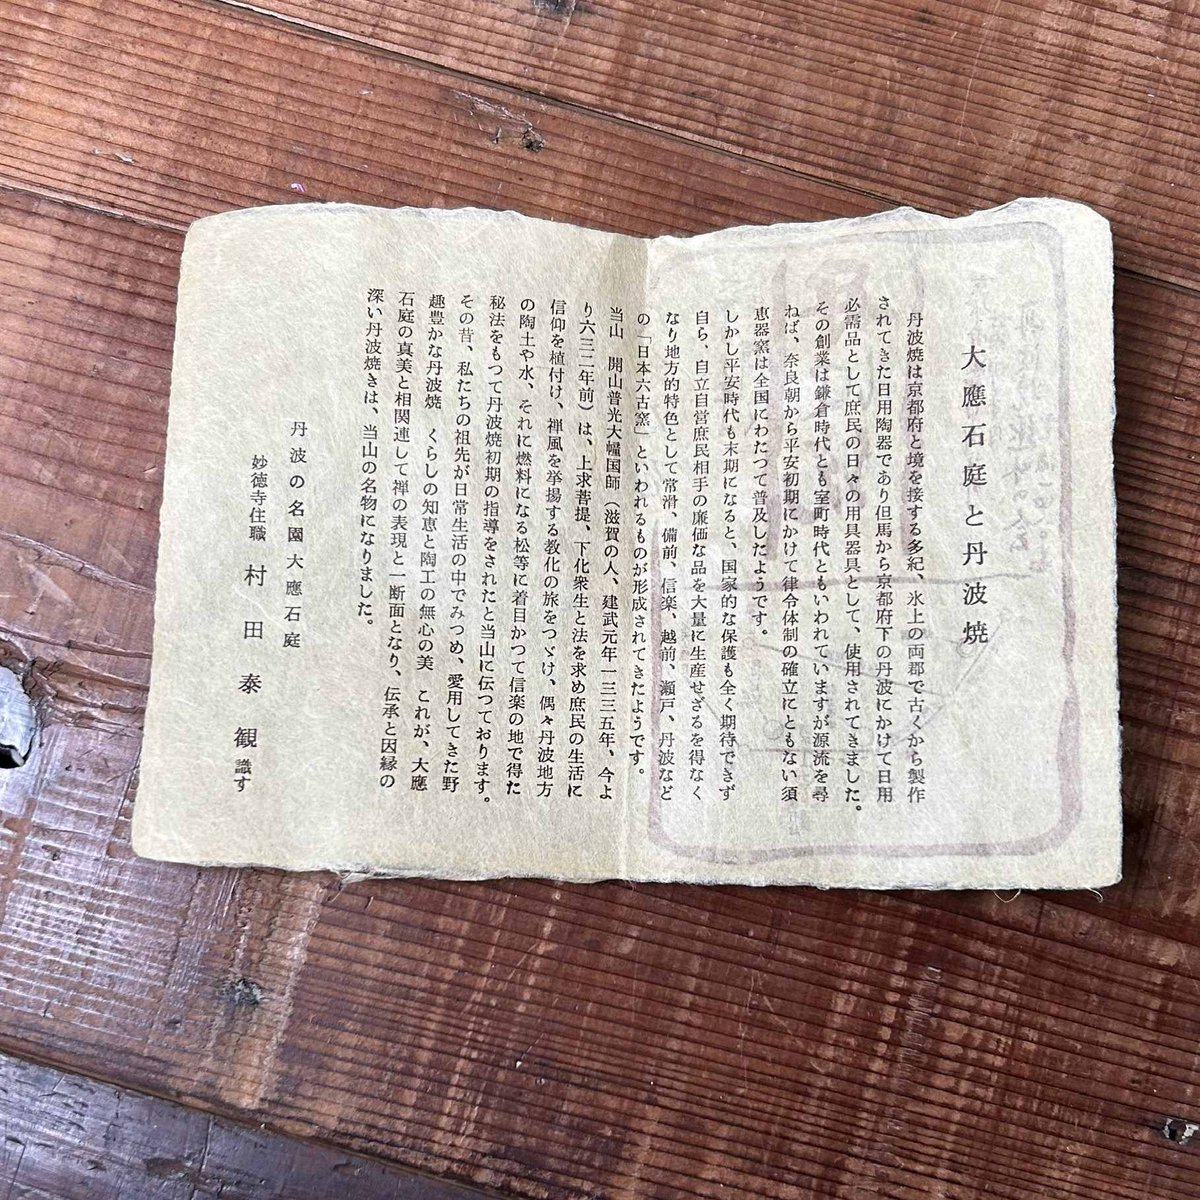 大應石庭と丹波焼
丹波焼は京都府と境を接する多紀、氷上の両郡で古くから製作
されてきた日用陶器であり但馬から京都府下の丹波にかけて日用
必需品として庶民の日々の用具器具として、使用されてきました。
その創業は鎌倉時代とも室町時代ともいわれていますが源流を尋
ねば、奈良朝から平安初期にかけて律令体制の確立にともない須
恵器窯は全国にわたつて普及したようです。
しかし平安時代も末期になると、国家的な保護も全く期待できず
自ら、自立自営庶民相手の廉価な品を大量に生産せざるを得なく
なり地方的特色として常滑、備前、信楽、越前、瀬戸、丹波など
の「日本六古窯」といわれるものが形成されてきたようです。
当山 開山普光大幢国師(滋賀の人、建武元年一三三五年、今よ
り六三二年前)は、上求菩提、下化衆生と法を求め庶民の生活に
信仰を植付け、禅風を挙揚する教化の旅をつゞけ、偶々丹波地方
の陶土や水、それに燃料になる松等に着目かつて信楽の地で得た
秘法をもつて丹波焼初期の指導をされたと当山に伝つております。
その昔、私たちの祖先が日常生活の中でみつめ、愛用してきた野
趣豊かな丹波焼 くらしの知恵と陶工の無心の美 これが、大應
石庭の真美と相関連して禅の表現と一断面となり、伝承と因縁の
深い丹波焼きは、当山の名物になりました。
丹波の名園大應石庭
妙徳寺住職 村田泰観識す